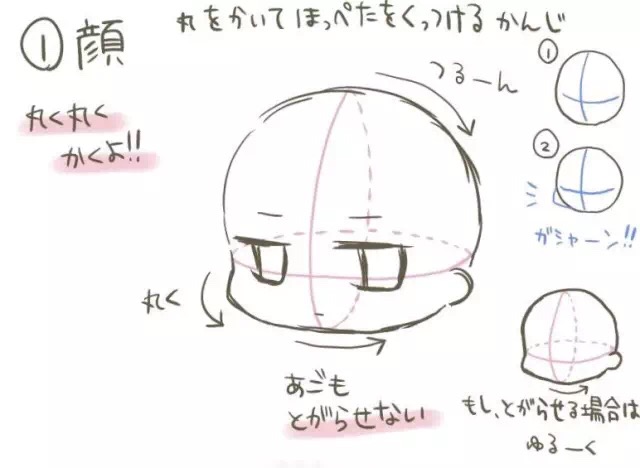 ① 顔
丸をかいてほっぺたをくっつけるかんじ
丸く丸く
かくよ!!
つるーん
①
②
ガシャーン!!
丸く
あごも
とがらせない
もし、とがらせる場合は
ゆるーく